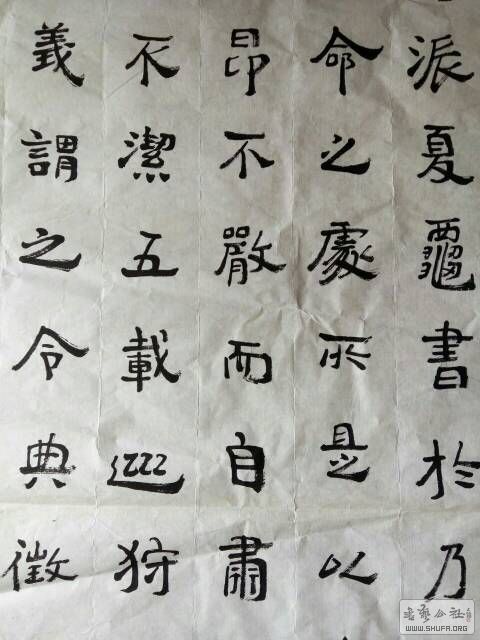 派夏書於乃
命之處所是以
昂不嚴而自肅
不潔五載巡狩
義謂之令典徵
书艺公社
WWW.SHUFA.ORG